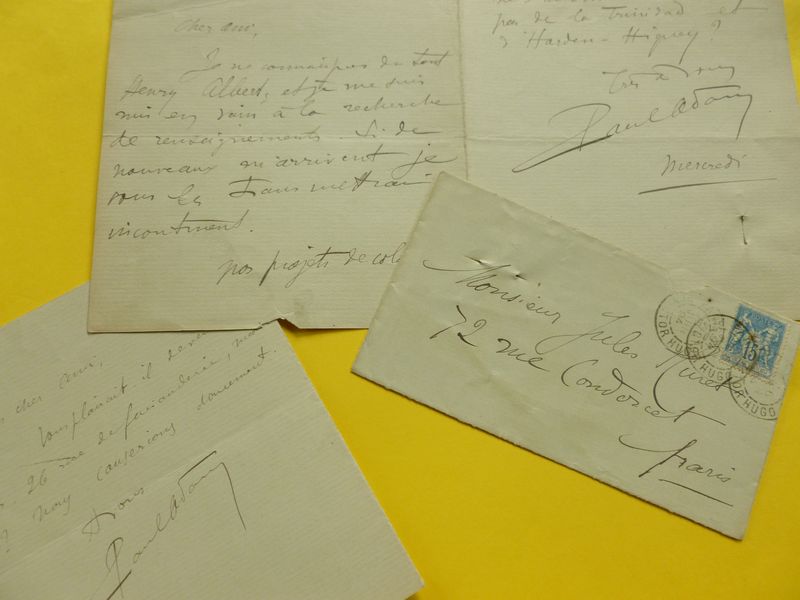 Cher ami,
Je ne connais pas du tout
Henry Albert, et je me suis
mis en vain à la recherche
de renseignements. Si de
nouveaux m'arrivent je
vous les transmettrai
incontinent.
nos projets de colo
pas de la Trinidad et
d'Harden-Hickey?
Très à vous
Paul Adam
Mercredi
cher ami,
Vous plairait-il de ve
26 rue de
? Nous causerions doucement.
À vous
Paul Adam
Monsieur Jules Huret
72 rue Condorcet
Paris
15
TOR HUGO
HUGO
OR HUGO